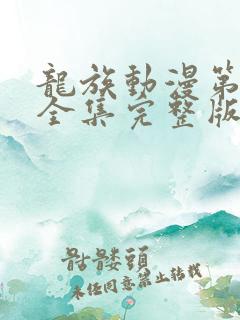 龍族動漫第
全集完整版
骷髏頭
未经同意禁止转载